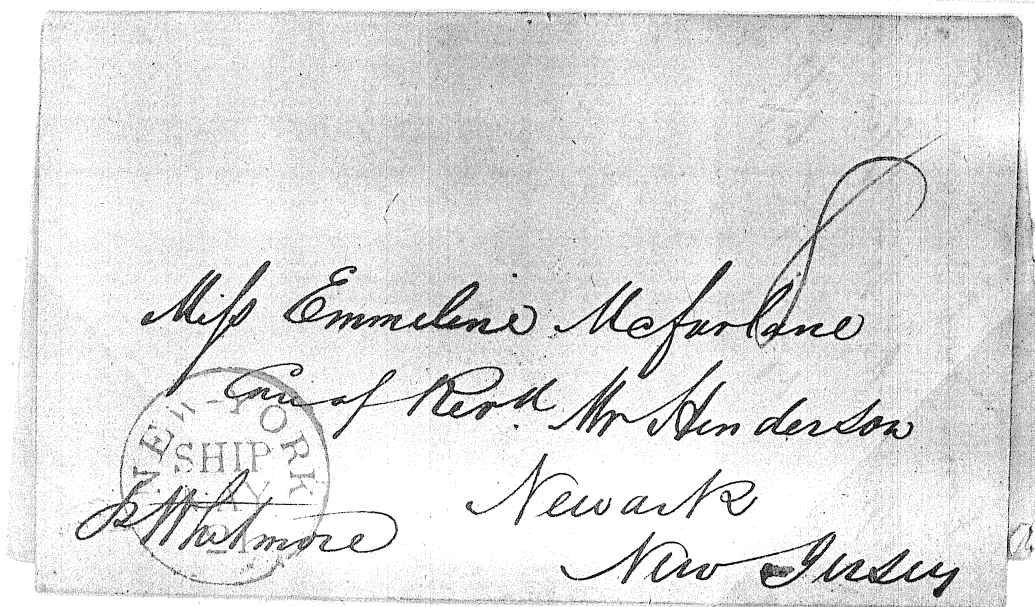 8
Miſs Emmeline Mcfarlane
Care of Revd. Mr Henderson
Newark
New Jersey
NEW-YORK
SHIP
MAY
21
Whitmore